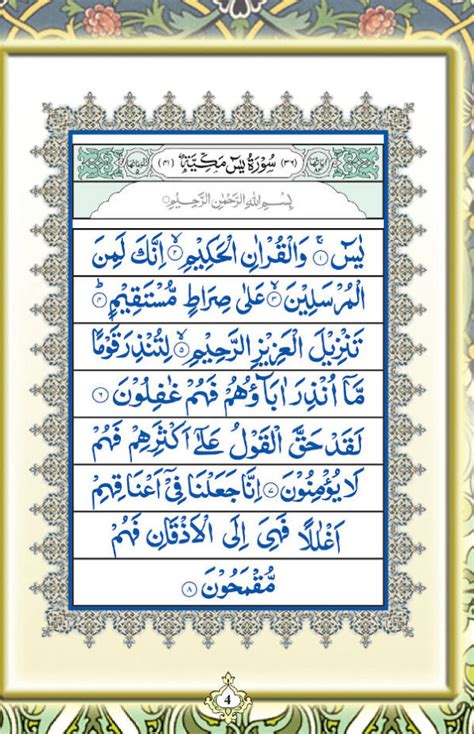 سُوْرَةُ يٰسٓ مَكِّيَّةٌ (٣٦) (٤١)
بِسْمِ اللهِ الرَّحْمٰنِ الرَّحِيْمِ
يٰسٓ ۝١ وَالْقُرْاٰنِ الْحَكِيْمِ ۝٢ اِنَّكَ لَمِنَ
الْمُرْسَلِيْنَ ۝٣ عَلٰى صِرَاطٍ مُّسْتَقِيْمٍ ۝٤
تَنْزِيْلَ الْعَزِيْزِ الرَّحِيْمِ ۝٥ لِتُنْذِرَ قَوْمًا
مَّاۤ اُنْذِرَ اٰبَآؤُهُمْ فَهُمْ غٰفِلُوْنَ ۝٦
لَقَدْ حَقَّ الْقَوْلُ عَلٰٓى اَكْثَرِهِمْ فَهُمْ
لَا يُؤْمِنُوْنَ ۝٧ اِنَّا جَعَلْنَا فِيْۤ اَعْنَاقِهِمْ
اَغْلٰلًا فَهِيَ اِلَى الْاَذْقَانِ فَهُمْ
مُّقْمَحُوْنَ ۝٨
4